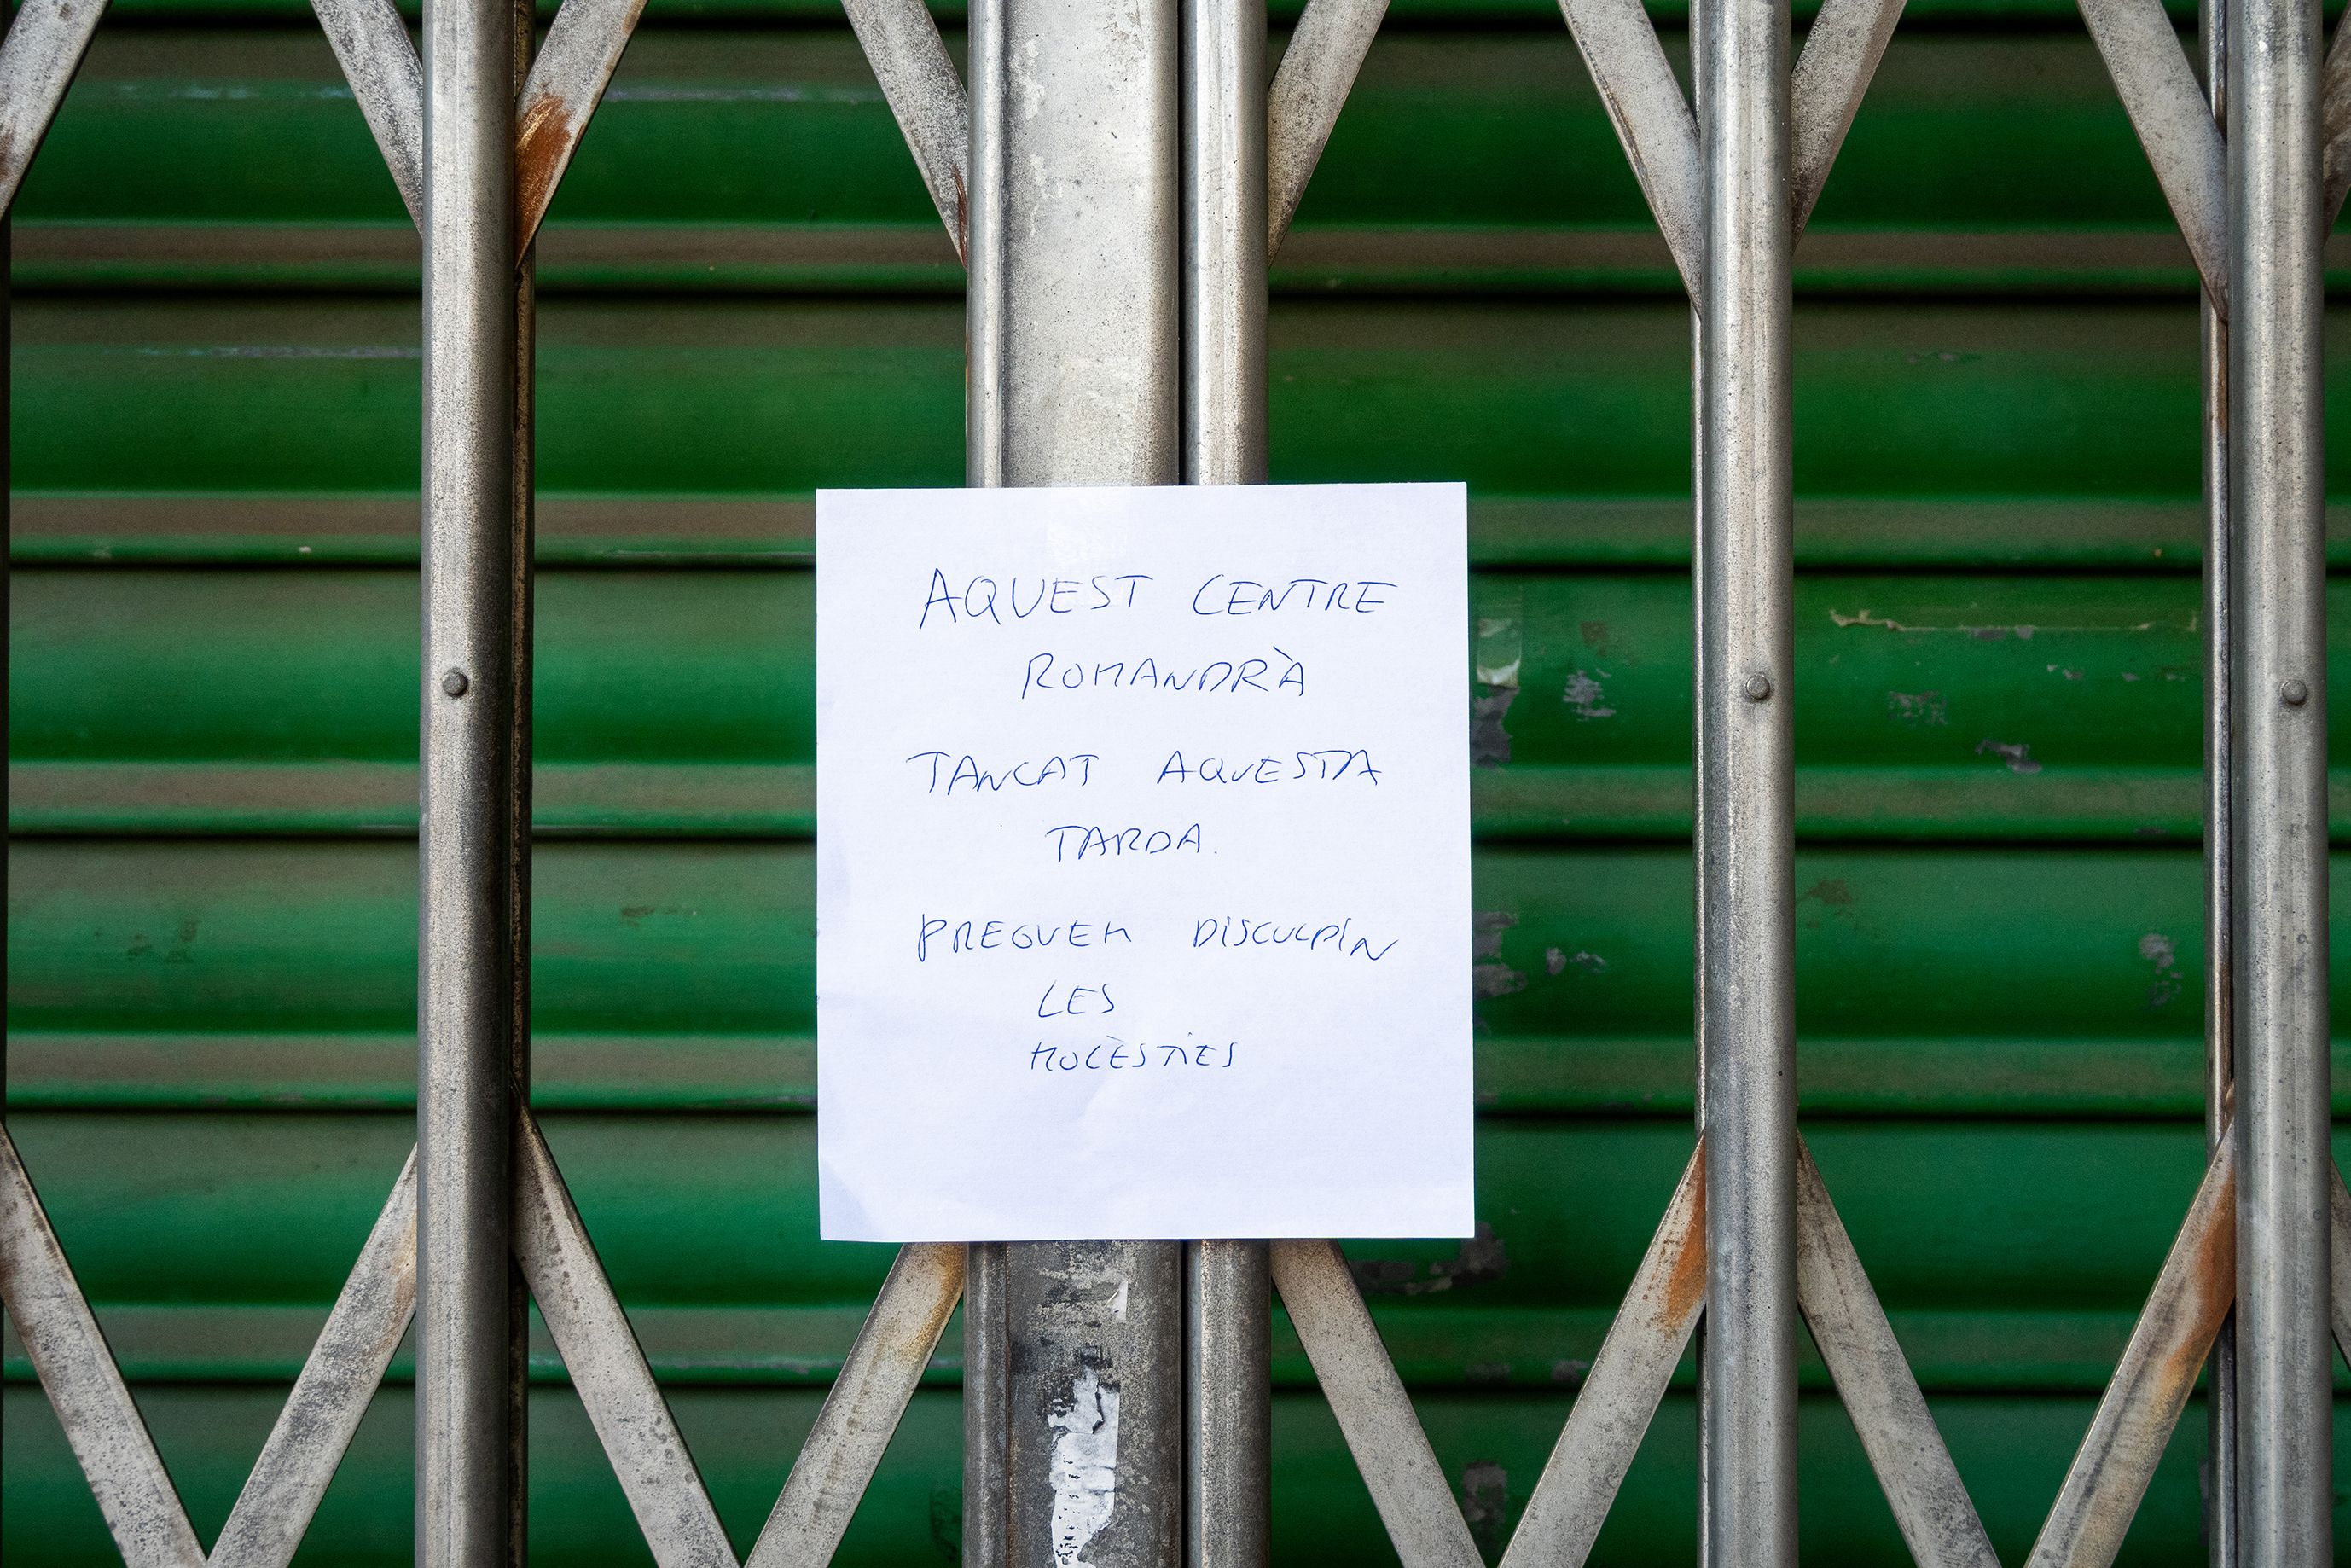 AQUEST CENTRE
ROMANDRÀ
TANCAT AQUESTA
TARDA.
PREGUEM DISCULPIN
LES
MOLÈSTIES